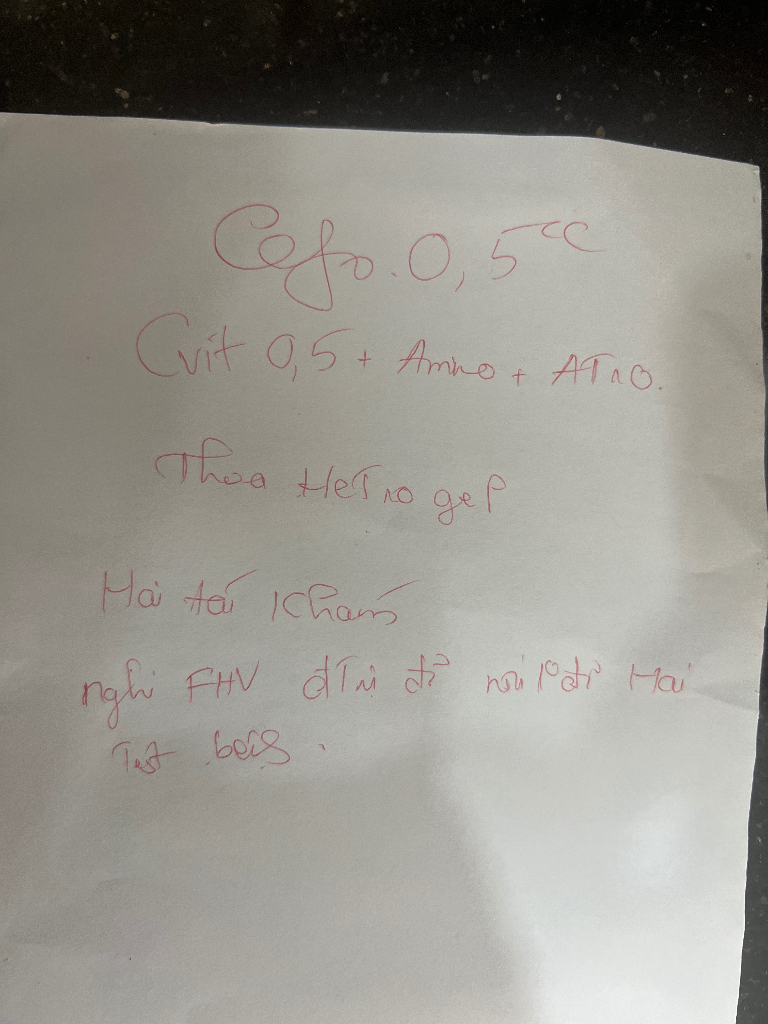 Cefo. 0,5cc
Cvit 0,5 + Amino + ATro.
Thoa Hetro gel
Hai tái khám
nghi FHV đTrị đỡ Hai
Test